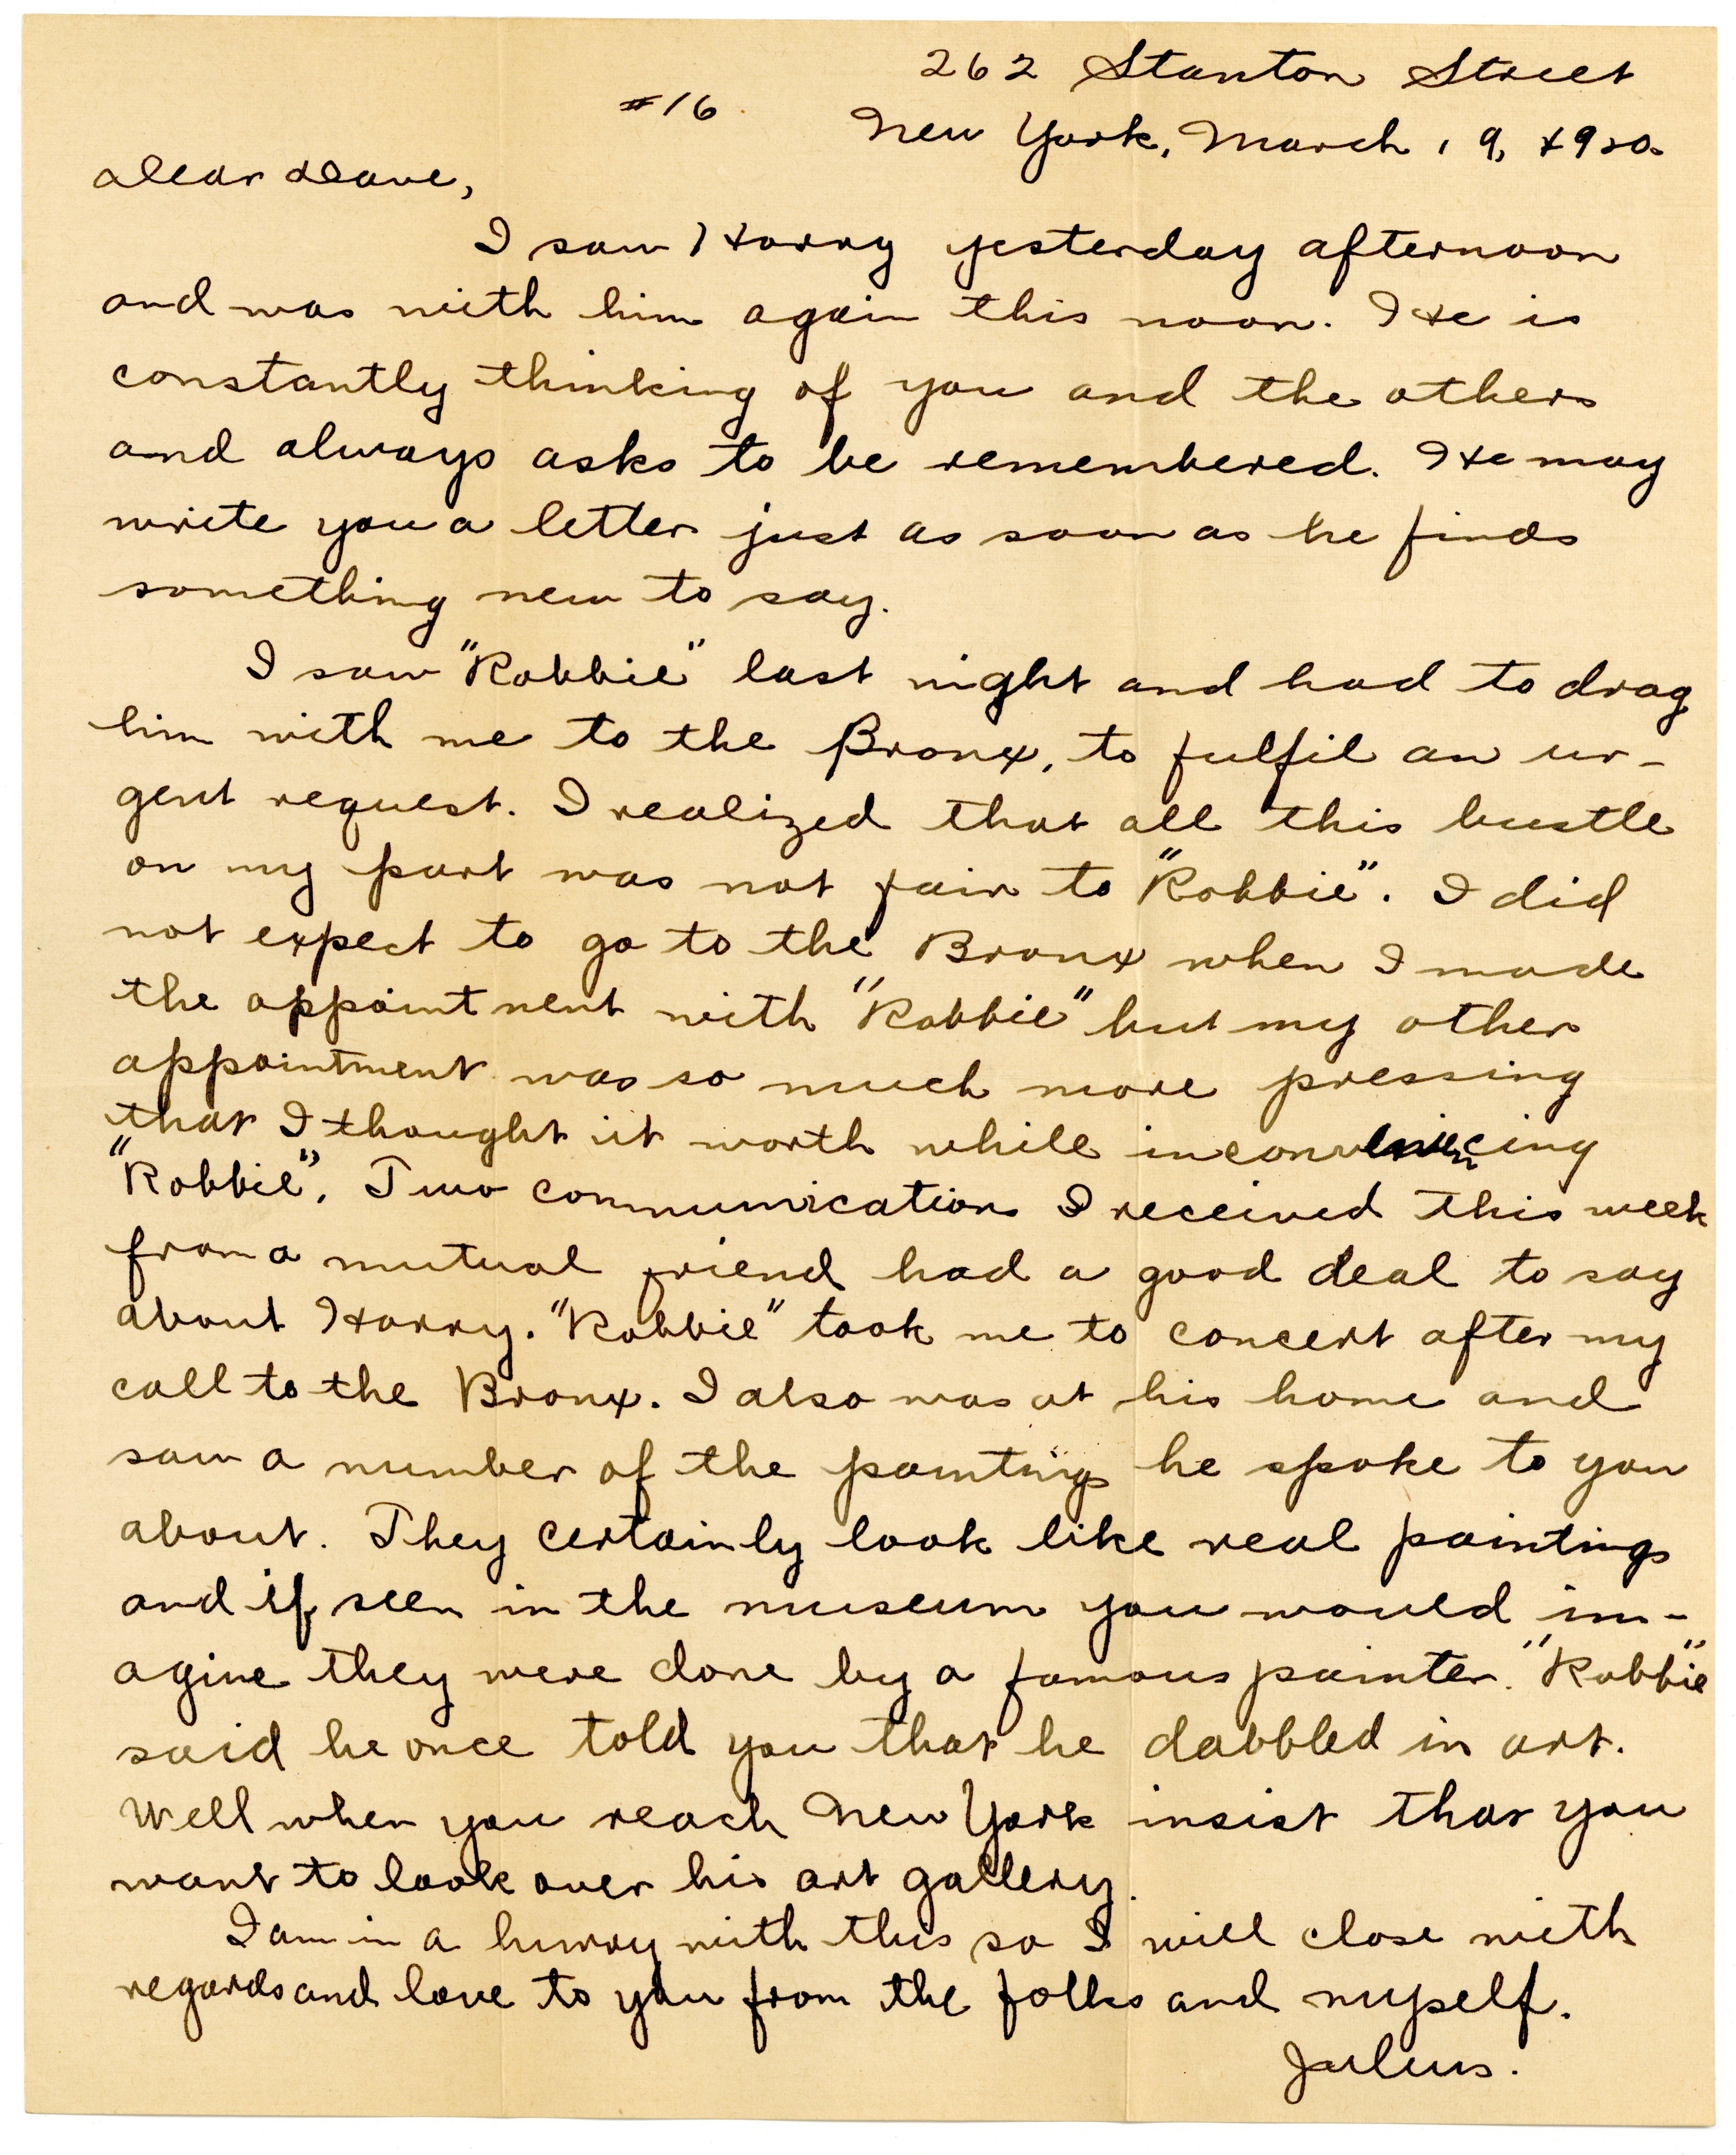 262 Stanton Street
#16
New York, March 19, 1920.
Dear Dave,
I saw Harry yesterday afternoon
and was with him again this noon. He is
constantly thinking of you and the others
and always asks to be remembered. He may
write you a letter just as soon as he finds
something new to say.
I saw "Robbie" last night and had to drag
him with me to the Bronx, to fulfil an ur-
gent request. I realized that all this bustle
on my part was not fair to "Robbie". I did
not expect to go to the Bronx when I made
the appointment with "Robbie" but my other
appointment was so much more pressing
that I thought it worth while inconveniencing
"Robbie". Two communications I received this week
from a mutual friend had a good deal to say
about Harry. "Robbie" took me to concert after my
call to the Bronx. I also was at his home and
saw a number of the paintings he spoke to you
about. They certainly look like real paintings
and if seen in the museum you would im-
agine they were done by a famous painter. "Robbie"
said he once told you that he dabbled in art.
Well when you reach New York insist that you
want to look over his art gallery.
I am in a hurry with this so I will close with
regards and love to you from the folks and myself.
Julius.